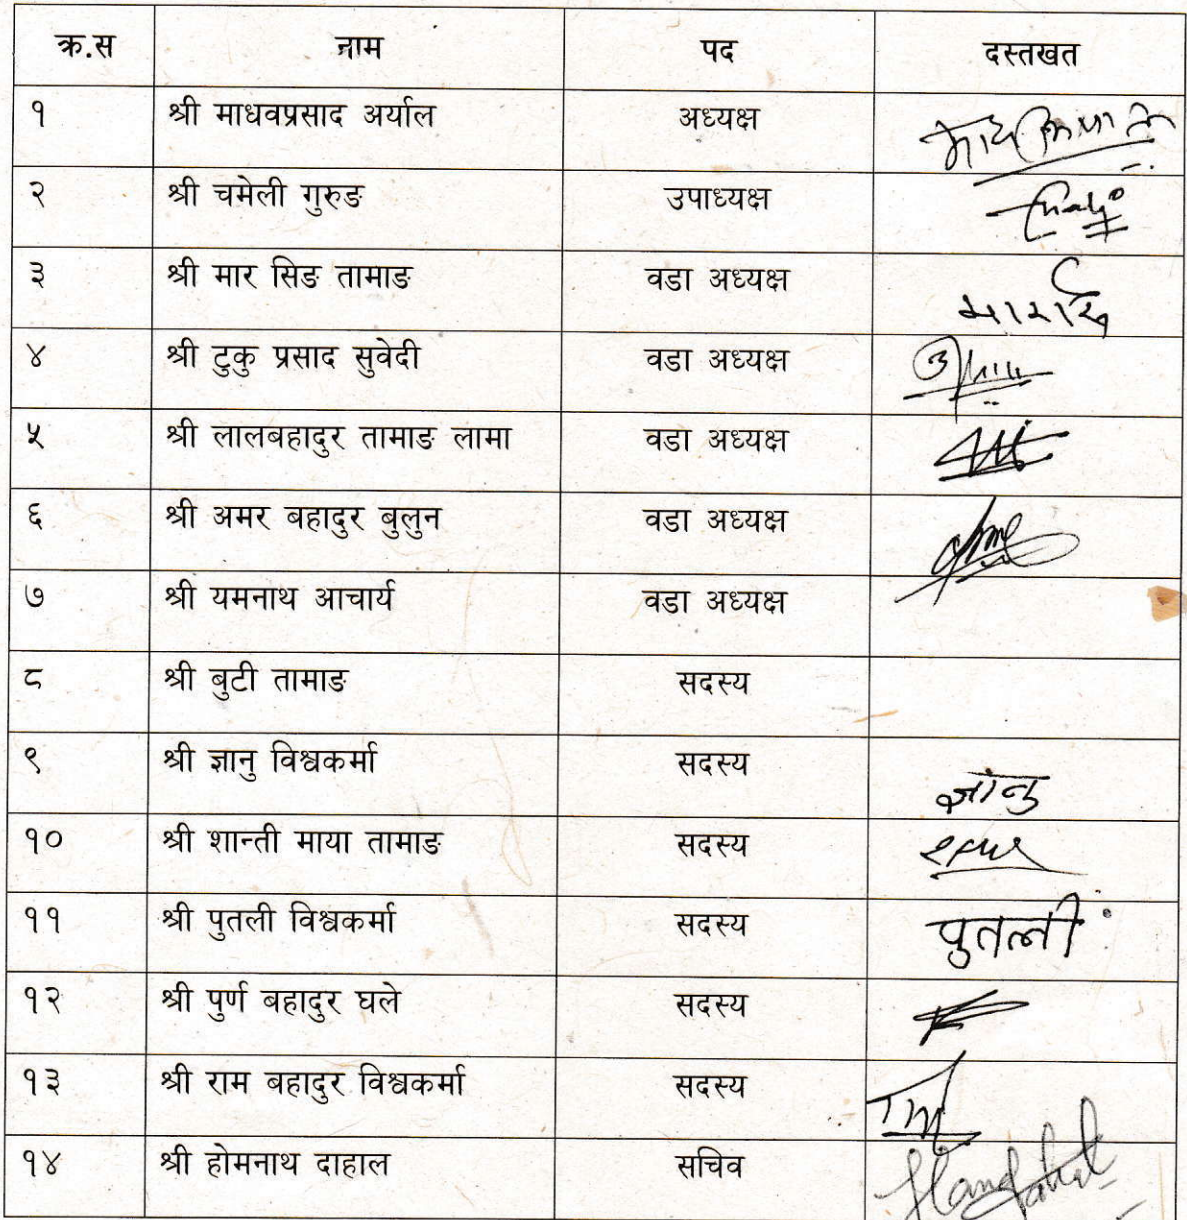 क्र.स नाम पद दस्तखत
१ श्री माधवप्रसाद अर्याल अध्यक्ष
२ श्री चमेली गुरुङ उपाध्यक्ष
३ श्री मार सिङ तामाङ वडा अध्यक्ष
४ श्री टुकु प्रसाद सुवेदी वडा अध्यक्ष
५ श्री लालबहादुर तामाङ लामा वडा अध्यक्ष
६ श्री अमर बहादुर बुलुन वडा अध्यक्ष
७ श्री यमनाथ आचार्य वडा अध्यक्ष
८ श्री बुटी तामाङ सदस्य
९ श्री ज्ञानु विश्वकर्मा सदस्य ज्ञानु
१० श्री शान्ती माया तामाङ सदस्य
११ श्री पुतली विश्वकर्मा सदस्य पुतली
१२ श्री पुर्ण बहादुर घले सदस्य
१३ श्री राम बहादुर विश्वकर्मा सदस्य
१४ श्री होमनाथ दाहाल सचिव